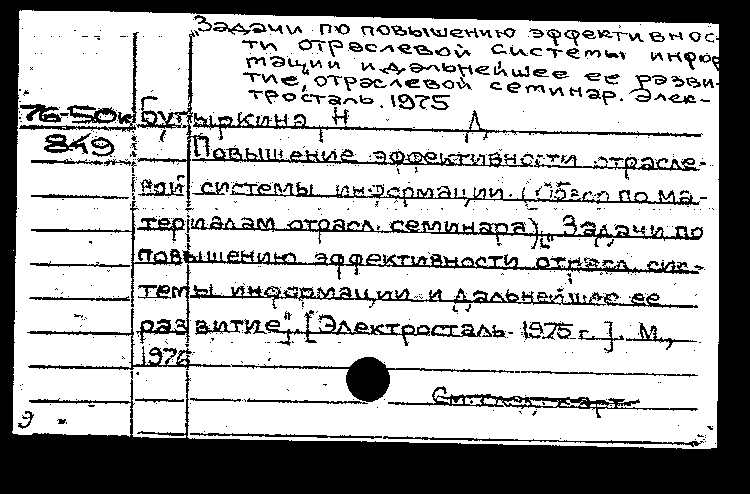 „Задачи по повышению эффективнос-
ти отраслевой системы инфор
мации и дальнейшее ее разви-
тие", отраслевой семинар. Элек-
тросталь. 1975
76-50к Бутыркина Н Д
849 Повышение эффективности отрасле-
вой системы информации. (Обзор по ма-
териалам отрасл. семинара) „Задачи по
повышению эффективности отрасл. сис-
темы информации и дальнейшее ее
развитие". [Электросталь. 1975 г.]. М.,
1976
См. след. карт
9